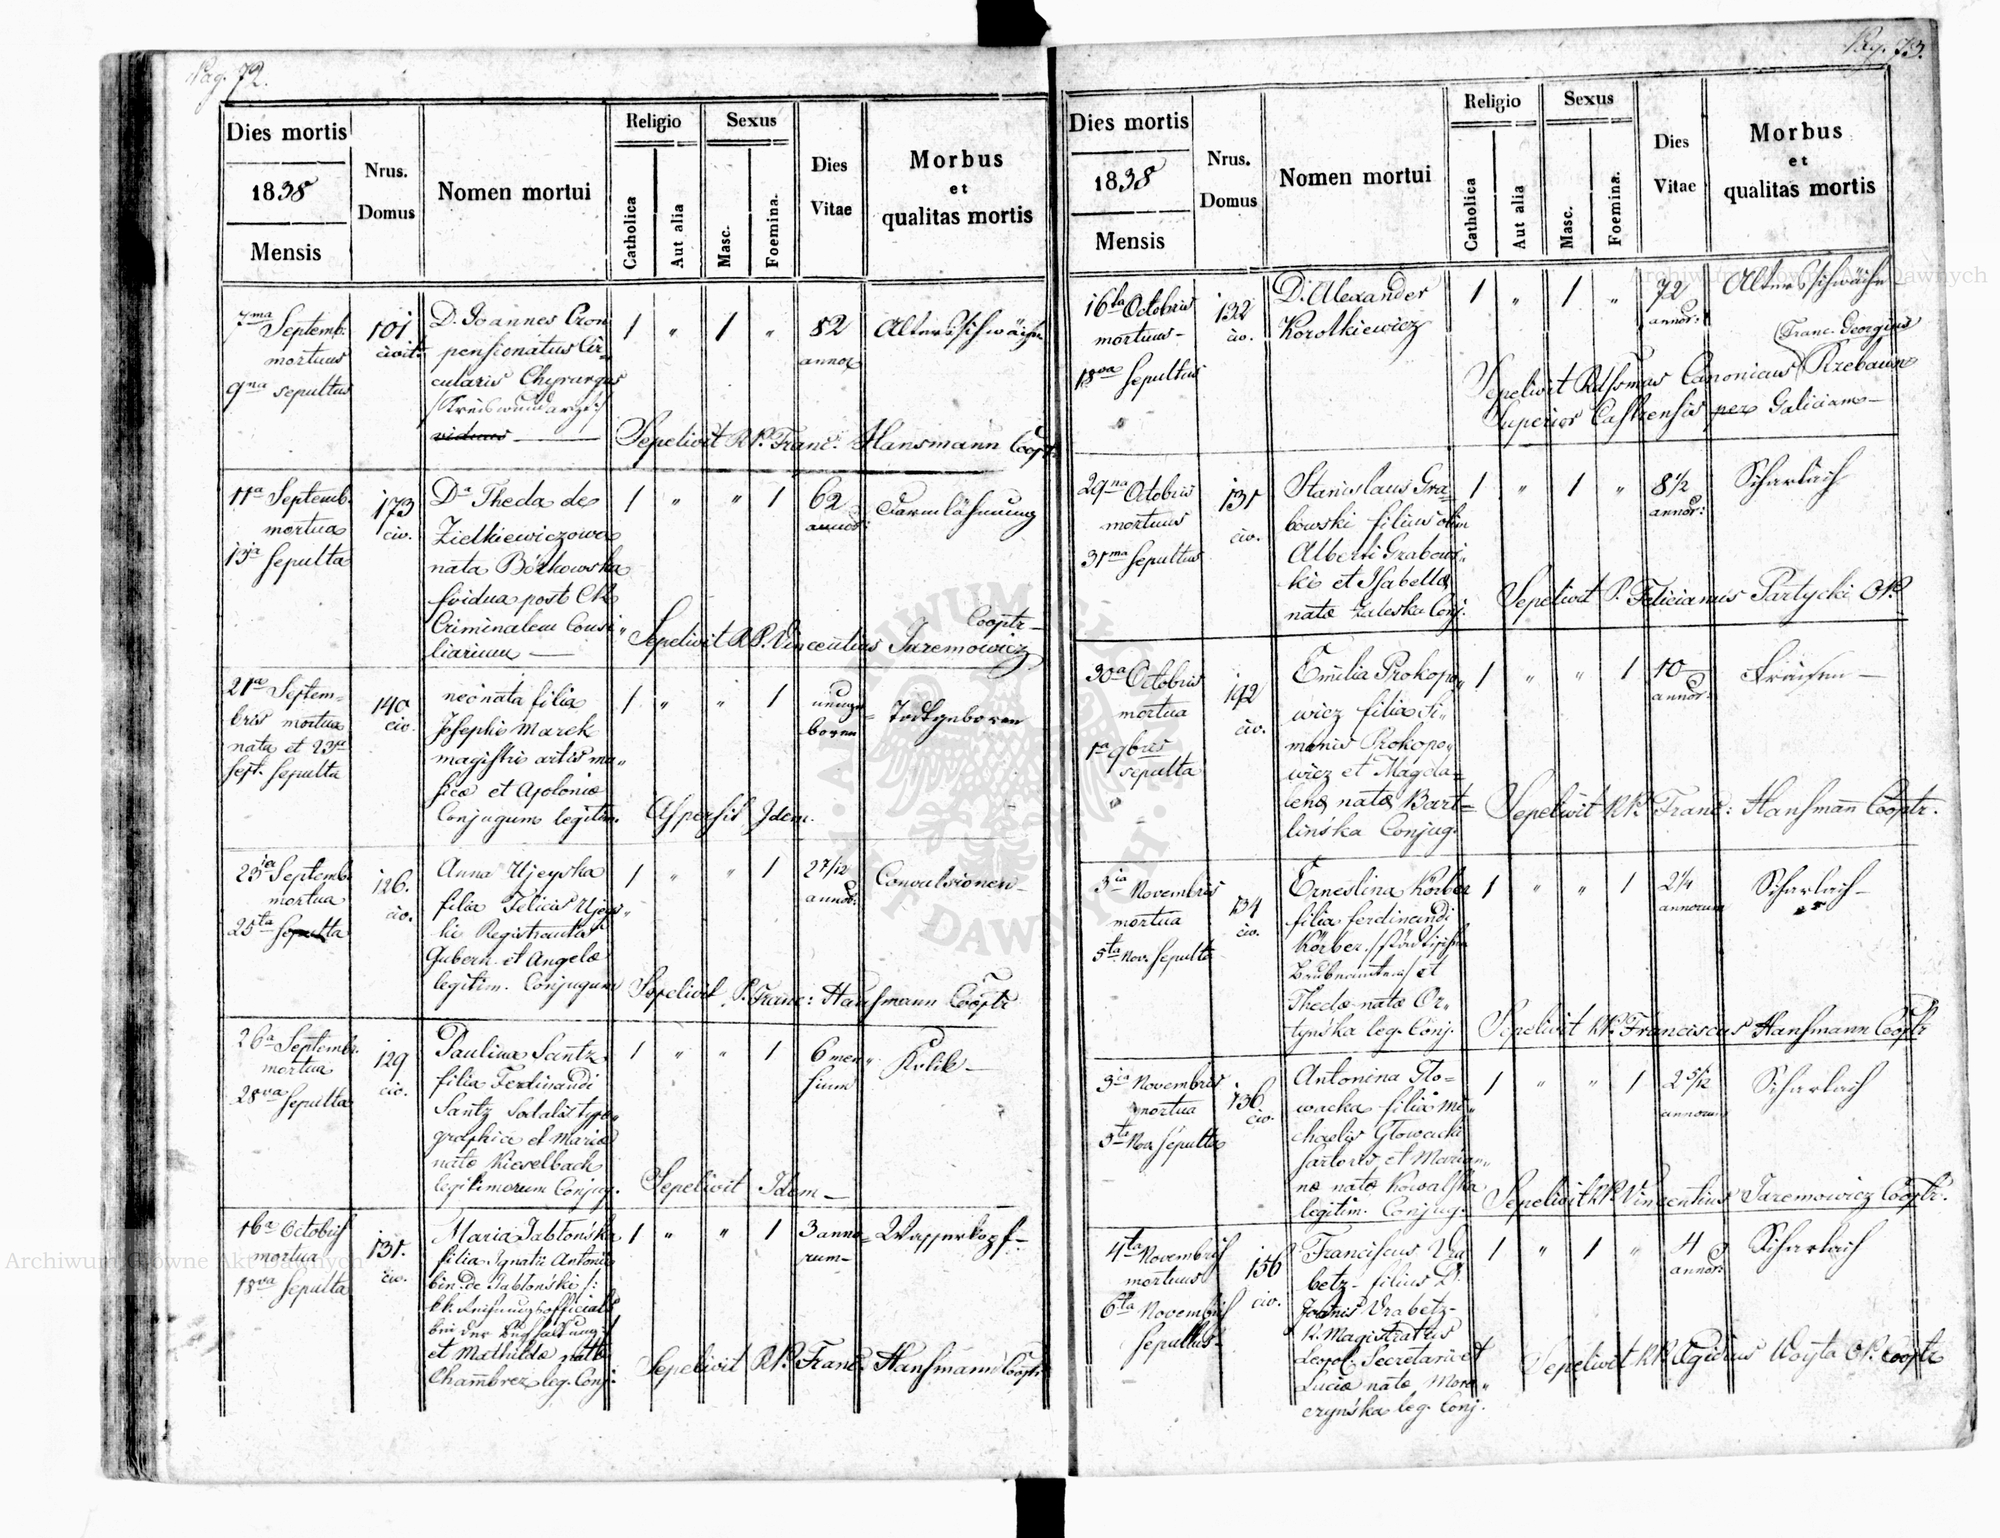 Pag. 72.
Dies mortis
1838
Mensis
Nrus.
Domus
Nomen mortui
Religio
Catholica
Aut alia
Sexus
Masc.
Foemina.
Dies
Vitae
Morbus
et
qualitas mortis
7ma Septemb.
mortuus
9na sepultus
101
civit.
D. Joannes Cron
pensionatus Cir-
cularis Chyrurgus
/:Kreiswundarzt:/
viduus
1 " 1 "
82
annor
Altersschwäche
Sepelivit R.P. Franc. Hansmann Cooptr
11a Septemb.
mortua
13ia sepulta
173
civ.
Da Theda de
Zietkiewiczowa
nata Borkowska
vidua post CR
Criminalem Consi-
liarium
1 " " 1
62
annor:
Darmlähmung
Sepelivit R.P. Vincentius Jaremowicz
Cooptr
21a Septem-
bris mortua
nata et 23ia
Sept. sepulta
140
civ.
neonata filia
Josephi Marek
magistri artis mu-
sicae et Apoloniae
Conjugum legitim.
1 " " 1
unge-
boren
Todtgeboren
Aspersit Idem.
23ia Septemb.
mortua
25ta sepulta
126.
civ.
Anna Ujeyska
filia Felicis Ujeys-
ki Registrantis
Gubern. et Angelae
legitim. Conjugum
1 " " 1
2 7/12
annor:
Convulsionen
Sepelivit P. Franc: Hansmann Cooptr
26a Septembr.
mortua
28va sepulta
129
civ.
Paulina Santz
filia Ferdinandi
Santz Sodalis typo-
graphiae et Mariae
natae Kieselbach
legitimorum Conjug.
1 " " 1
6 men-
sium
Kolik
Sepelivit Idem
16a Octobris
mortua
18va sepulta
131.
civ.
Maria Jabłońska
filia Ignatii Antonii
bin: de Jabłoński /:
kk. Rechnungsofficials
bei der Buchhaltung:/
et Mathildae natae
Chambrez leg. Conj:
1 " " 1
3 anno-
rum
Wasserkopf
Sepelivit R.P. Franc. Hansmann Cooptr
Pag. 73.
Dies mortis
1838
Mensis
Nrus.
Domus
Nomen mortui
Religio
Catholica
Aut alia
Sexus
Masc.
Foemina.
Dies
Vitae
Morbus
et
qualitas mortis
16ta Octobris
mortuus
18va sepultus
132
civ.
D. Alexander
Korotkiewicz
1 " 1 "
72
annor:
Altersschwäche
Franc. Georgius
Sepelivit Rdssmus Canonicus Rzebaum
Superior Castrensis per Galiciam
29na Octobris
mortuus
31ma sepultus
131
civ.
Stanislaus Gra-
bowski filius olim
Alberti Grabows-
ki et Isabellae
natae Zaleska Conj.
1 " 1 "
8 1/2
annor:
Scharlach
Sepelivit P. Felicianus Partycki O.P.
30a Octobris
mortua
1a 9bris
sepulta
192
civ.
Emilia Prokopo-
wicz filia Si-
monis Prokopo-
wicz et Magda-
lenae natae Bart-
linska Conjug.
1 " " 1
10
annor:
Fraisen
Sepelivit R.P. Franc: Hansmann Cooptr.
3ia Novembris
mortua
5ta Nov. sepulta
134
civ.
Ernestina Körber
filia Ferdinandi
Körber /:städtischen
Thedae natae Or-
tynska leg. Conj.
1 " " 1
2 1/4
annorum
Scharlach
Sepelivit R.P. Franciscus Hansmann Cooptr
3ia Novembris
mortua
5ta Nov. sepulta
136
civ.
Antonina Glo-
wacka filia Mi-
chaelis Głowacki
sartoris et Marian-
nae natae Kowalska
legitim. Conjug.
1 " " 1
2 5/12
annorum
Scharlach
Sepelivit R.P. Vincentius Jaremowicz Cooptr.
4ta Novembris
mortuus
6ta Novembris
sepultus
156
civ.
Franciscus Vra
betz filius D.
Joanis Vrabetz
R. Magistratus
Leopol. Secretarii et
Luciae natae More-
czynska leg. Conj.
1 " 1 "
4
annor:
Scharlach
Sepelivit R.P. Agidius Woyta O.P. Cooptr
Archiwum Główne Akt Dawnych
Archiwum Główne Akt Dawnych
ARCHIWUM GŁÓWNE AKT DAWNYCH